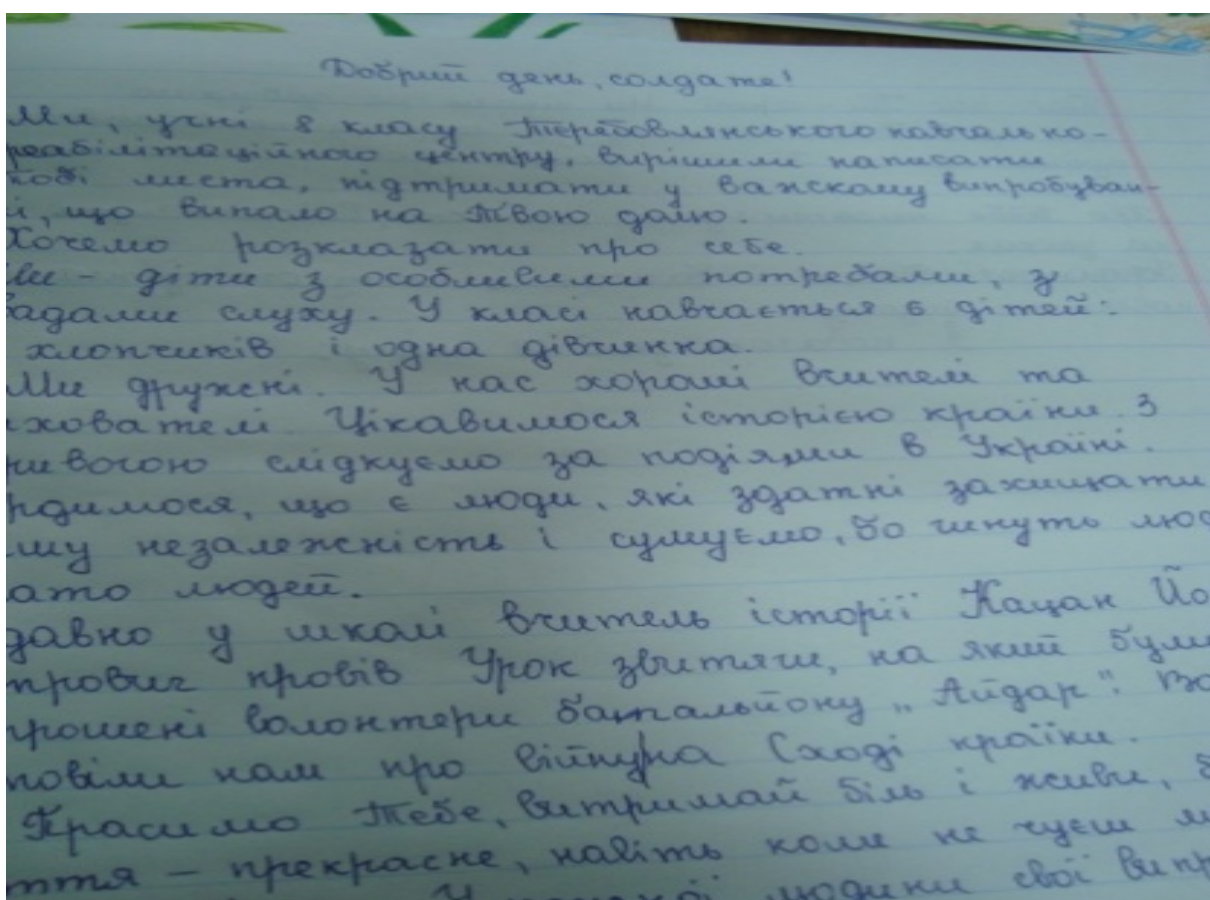 Добрий день, солдате!
Ми, учні 8 класу Теребовлянського навчально-
реабілітаційного центру, вирішили написати
тобі листа, підтримати у важкому випробуван-
і, що випало на Твою долю.
Хочемо розклазати про себе.
Ми - діти з особливими потребами, з
вадами слуху. У класі навчається 6 дітей:
хлопчиків і одна дівчинка.
Ми дружні. У нас хороші вчителі та
ихователі. Цікавимося історією країни. З
ривогою слідкуємо за подіями в Україні.
рдимося, що є люди, які здатні захищати
ашу незалежність і сумуємо, бо гинуть
ато людей.
давно у школі вчитель історії Кацан Йо
трович провів Урок звитяги, на який були
прошені волонтери батальйону „Айдар". Во
повіли нам про війну на Сході країни.
Прасимо Тебе, витримай біль і живи, б
ття - прекрасне, навіть коли не чуєш
людини свої випр